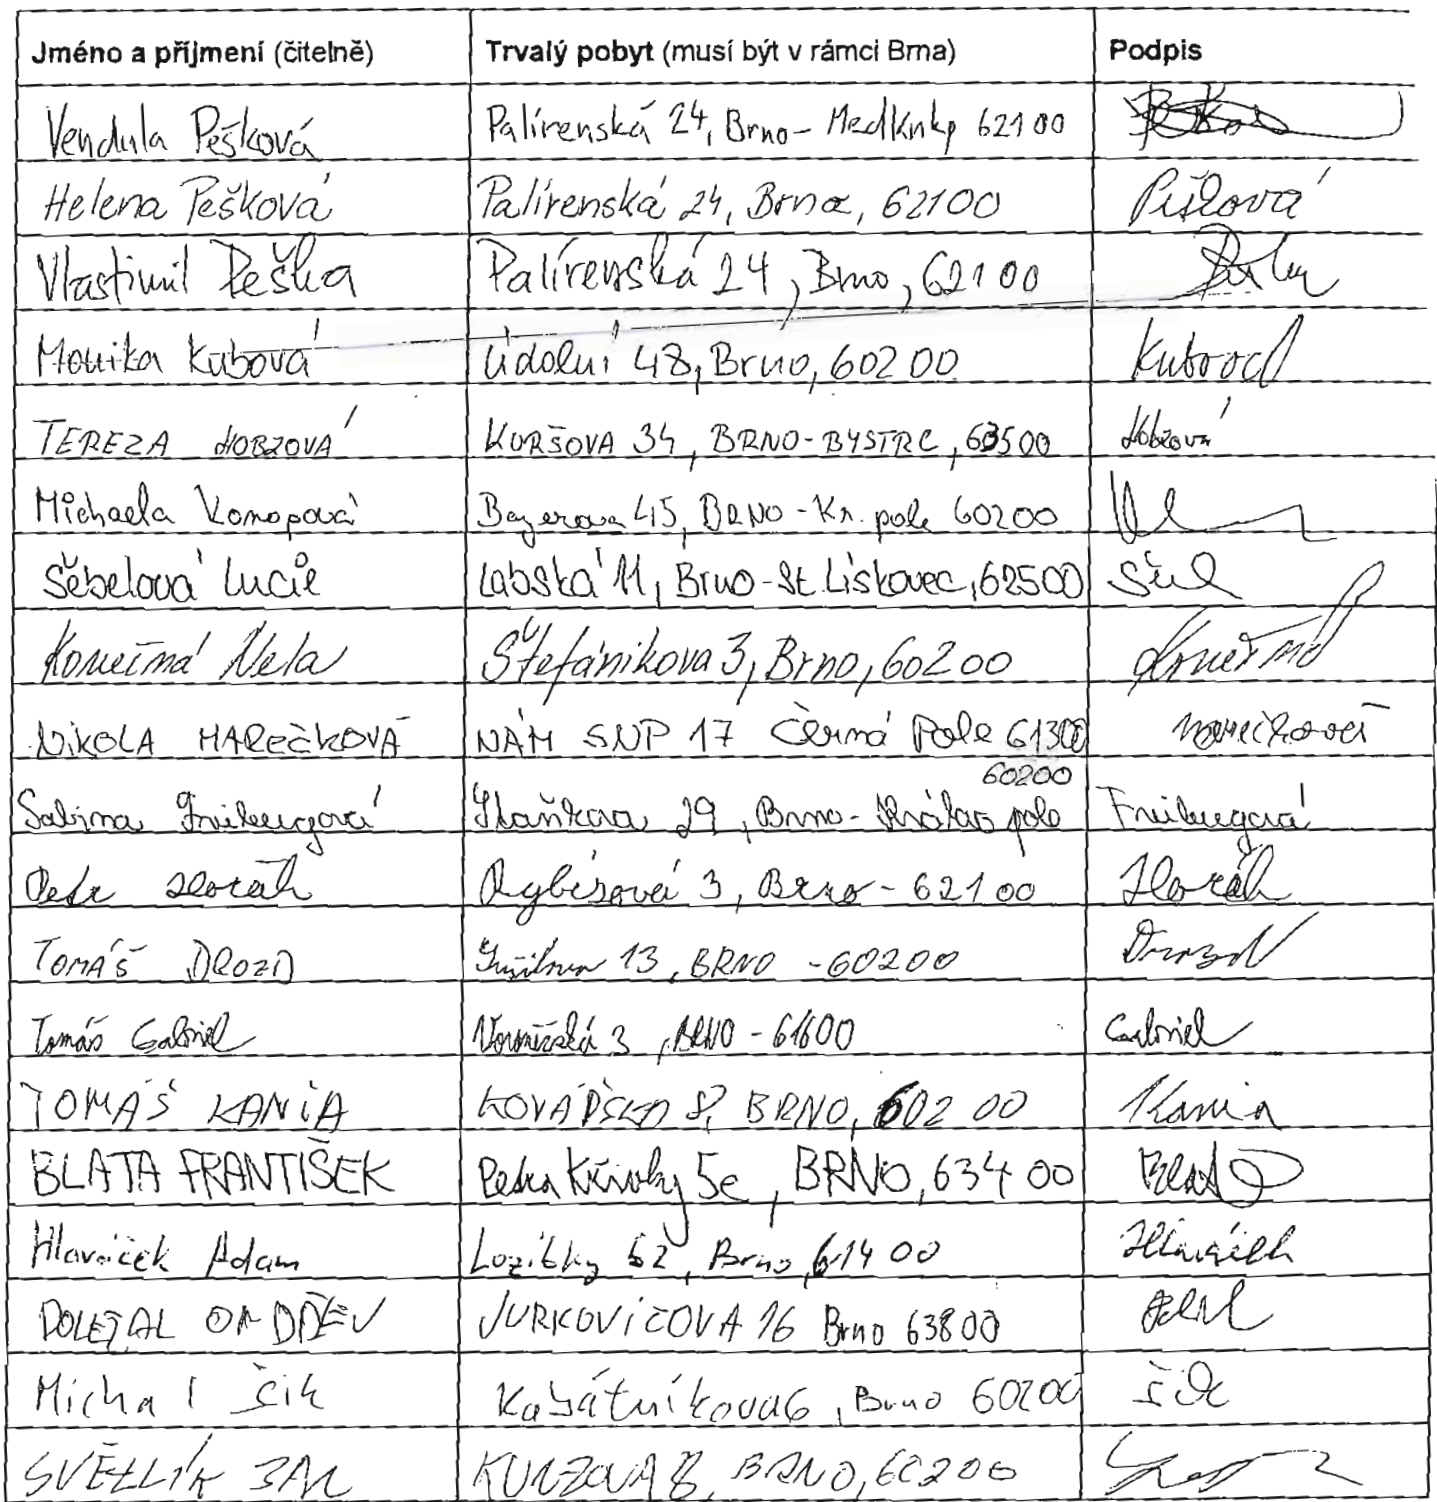 Jméno a příjmení (čitelně) Trvalý pobyt (musí být v rámci Brna) Podpis
Vendula Pešková Palírenská 24, Brno - 62100
Helena Pešková Palírenská 24, Brno, 62100 Pešková
Vlastimil Peška Palírenská 24, Brno, 62100
Monika Kubová Údolní 48, Brno, 60200 Kubová
TEREZA HOBZOVÁ KURŠOVA 34, BRNO-BYSTRC, 63500 Hobzová
Michaela Konopová Bayerova 45, BRNO - Kr. pole 60200
Šebelová Lucie Labská 11, Brno-St. Lískovec, 62500
Konečná Nela Štefánikova 3, Brno, 60200 Konečná
NIKOLA HAREČKOVÁ NÁM SNP 17 Černá Pole 61300
60200
Sabina Freibergová 29, Brno - Královo pole Freibergová
Petr Horák 3, Brno - 62100 Horák
TOMÁŠ DROZD 13, BRNO - 60200 Drozd
Tomáš Gabriel 3, BRNO - 61600 Gabriel
TOMÁŠ KANIA KOVÁŘSKÁ 8, BRNO, 602 00 Kania
BLATA FRANTIŠEK Petra Křivky 5e, BRNO, 634 00
Hlaváček Adam Lozíbky 62, Brno, 614 00 Hlaváček
DOLEŽAL ONDŘEJ JURKOVIČOVA 16 Brno 63800
Michal Šik Kabátníkova 6, Brno 60200 Šik
SVĚTLÍK JAN 8, BRNO, 60200